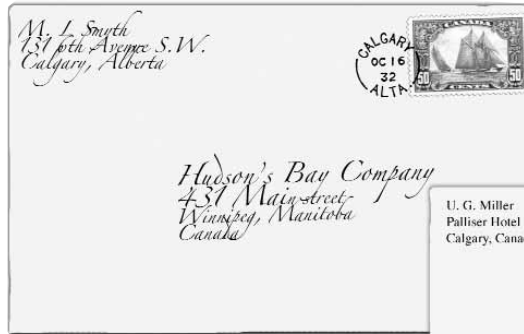 M. L. Smyth
131 6th Avenue S.W.
Calgary, Alberta
CALGARY
OC 16
32
ALTA.
CANADA
50 50
CENTS
Hudson's Bay Company
431 Main street
Winnipeg, Manitoba
Canada
U. G. Miller
Palliser Hotel
Calgary, Cana